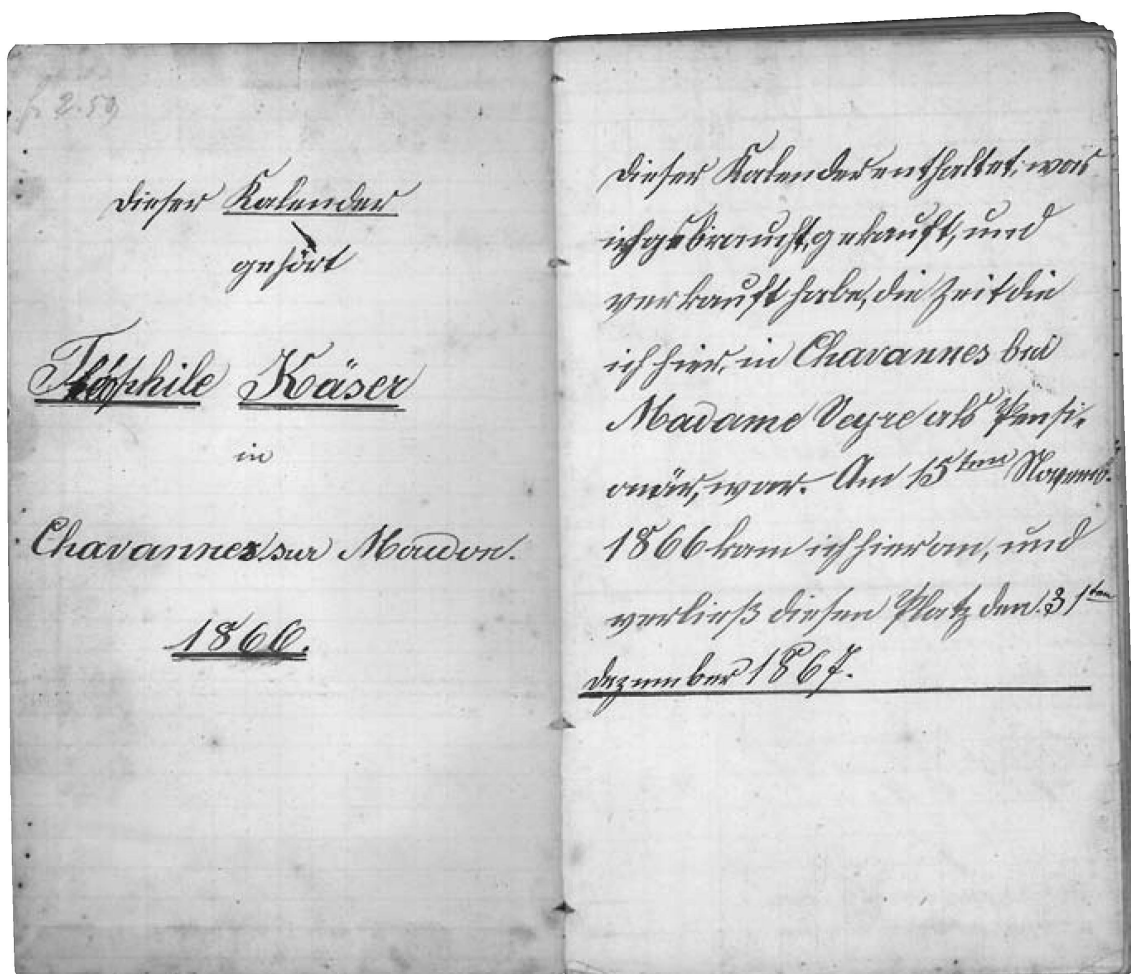 fr 2.50
Dieser Kalender
gehört
Théophile Käser
in
Chavannes sur Moudon.
1866.
Dieser Kalender enthaltet, was
ich gebraucht, gekauft, und
verkauft habe, die Zeit die
ich hier, in Chavannes bei
Madame Veyre als Pensi-
onär, war. Am 15ten Novemb.
1866 kam ich hier an, und
verließ diesen Platz den 31ten
Dezember 1867.